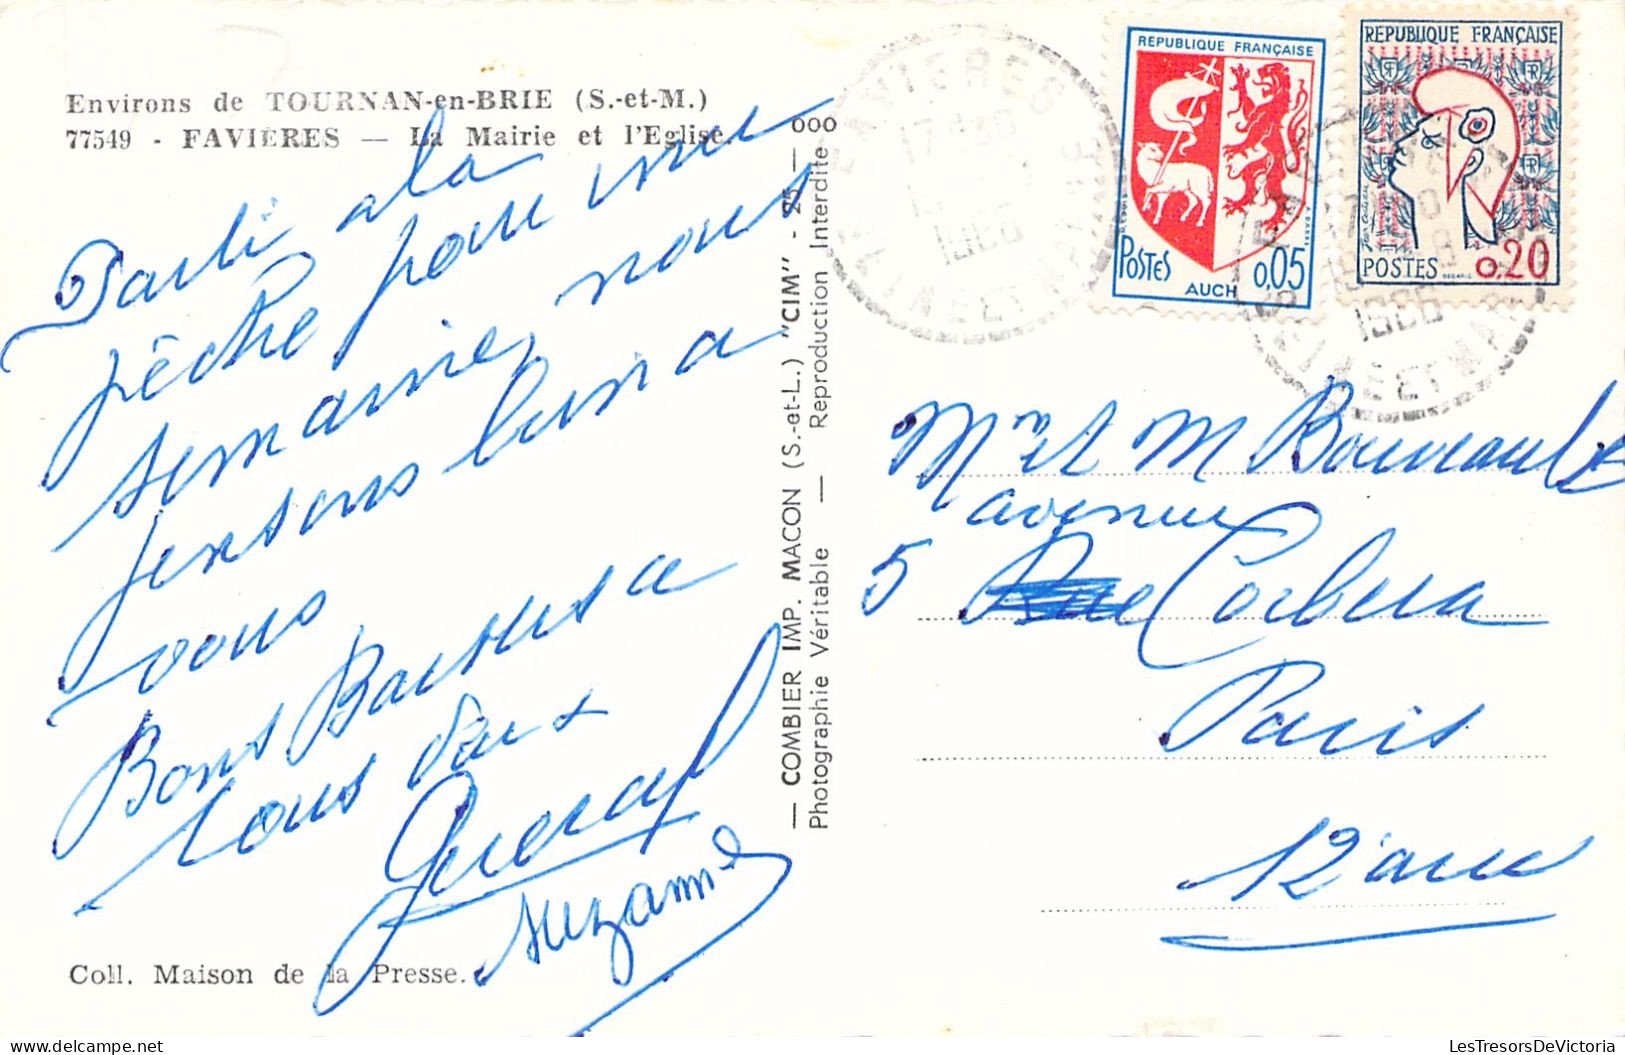 Environs de TOURNAN-en-BRIE (S.-et-M.)
77549 - FAVIÈRES — La Mairie et l'Eglise.
Parti a la
pêche pour une
semaine, nous
pensons bien a
vous
Bons Baisers a
tous deux
Suzanne
Coll. Maison de la Presse.
— COMBIER IMP. MACON (S.-et-L.) "CIM" - 25 — 000
Photographie Véritable — Reproduction Interdite
FAVIERES
17 H 30
1966
SEINE ET MARNE
REPUBLIQUE FRANÇAISE
POSTES
AUCH
0,05
REPUBLIQUE FRANÇAISE
POSTES
0.20
1966
SEINE ET MARNE
Me et M
avenue
5 Rue Corbera
Paris
12 ème
LesTresorsDeVictoria